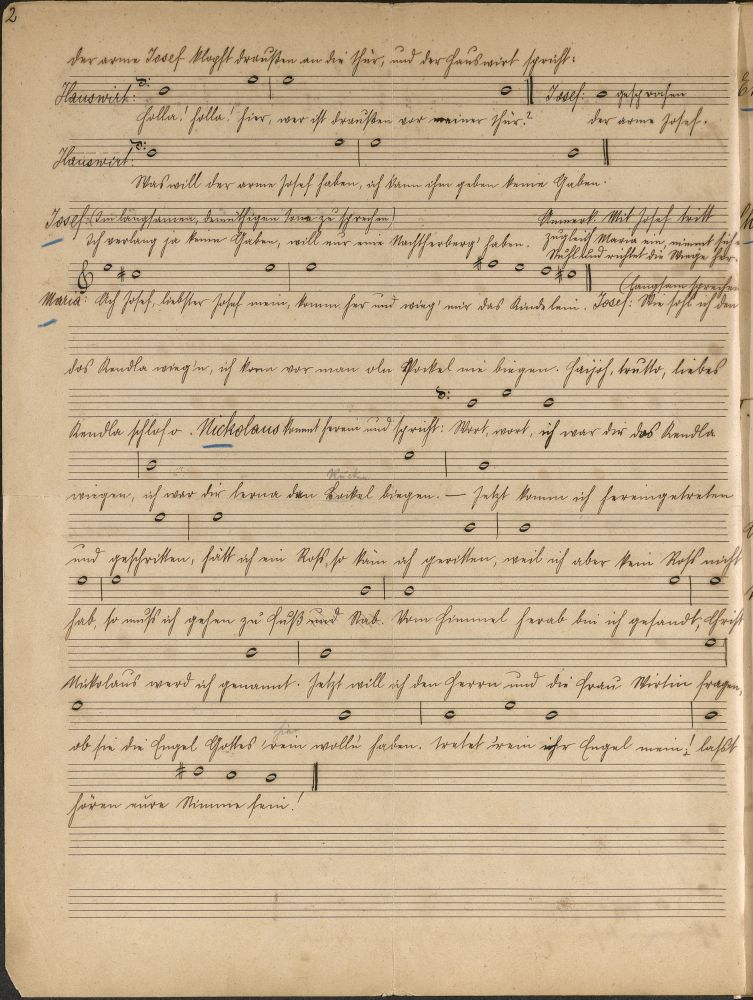 2
der arme Josef klopft draußen an die Thür, und der Hauswirt spricht:
Hauswirt: Josef: gesprochen
Holla! holla! hier, wer ist draußen vor meiner Thür? der arme Josef.
Hauswirt:
Was will der arme Josef haben, ich kann ihm geben keine Gaben.
Josef: (Im langsamen, demüthigen Tone zu sprechen) Anmerk. Mit Josef tritt
Ich verlang ja keine Gaben, will nur eine Nachtherberg' haben. zugleich Maria ein, nimmt sich e.
Stuhl und richtet die Wiege her.
(langsam sprechen
Maria: Ach Josef, liebster Josef mein, komm her und wieg' mir das Kindelein. Josef: Wie sohl ich denn
dos Kendla wieg'n, ich konn vor man oln Pockel nie biegen. Haijoh, trutto, liebes
Kendla schlof o. Nickolaus kommt herein und spricht: Wort, wort, ich war dir dos Kendla
Rücken
wiegen, ich war dir lerna dan Bockel biegen. — Jetzt komm ich hereingetreten
und geschritten, hätt ich ein Roß, so käm ich geritten, weil ich aber kein Roß nicht
hab, so muß ich gehen zu Fuß und Stab. Vom Himmel herab bin ich gesandt, Christ
Nikolaus werd ich genannt. Jetzt will ich den Herrn und die Frau Wirtin fragen,
ob sie die Engel Gottes 'rein wolln haben. tretet 'rein ihr Engel mein! laßt
hören eure Stimme fein!